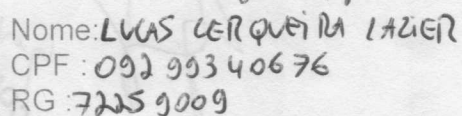 Nome: LUCAS CERQUEIRA LAZIER
CPF : 092 993 406 76
RG : 7225 9009